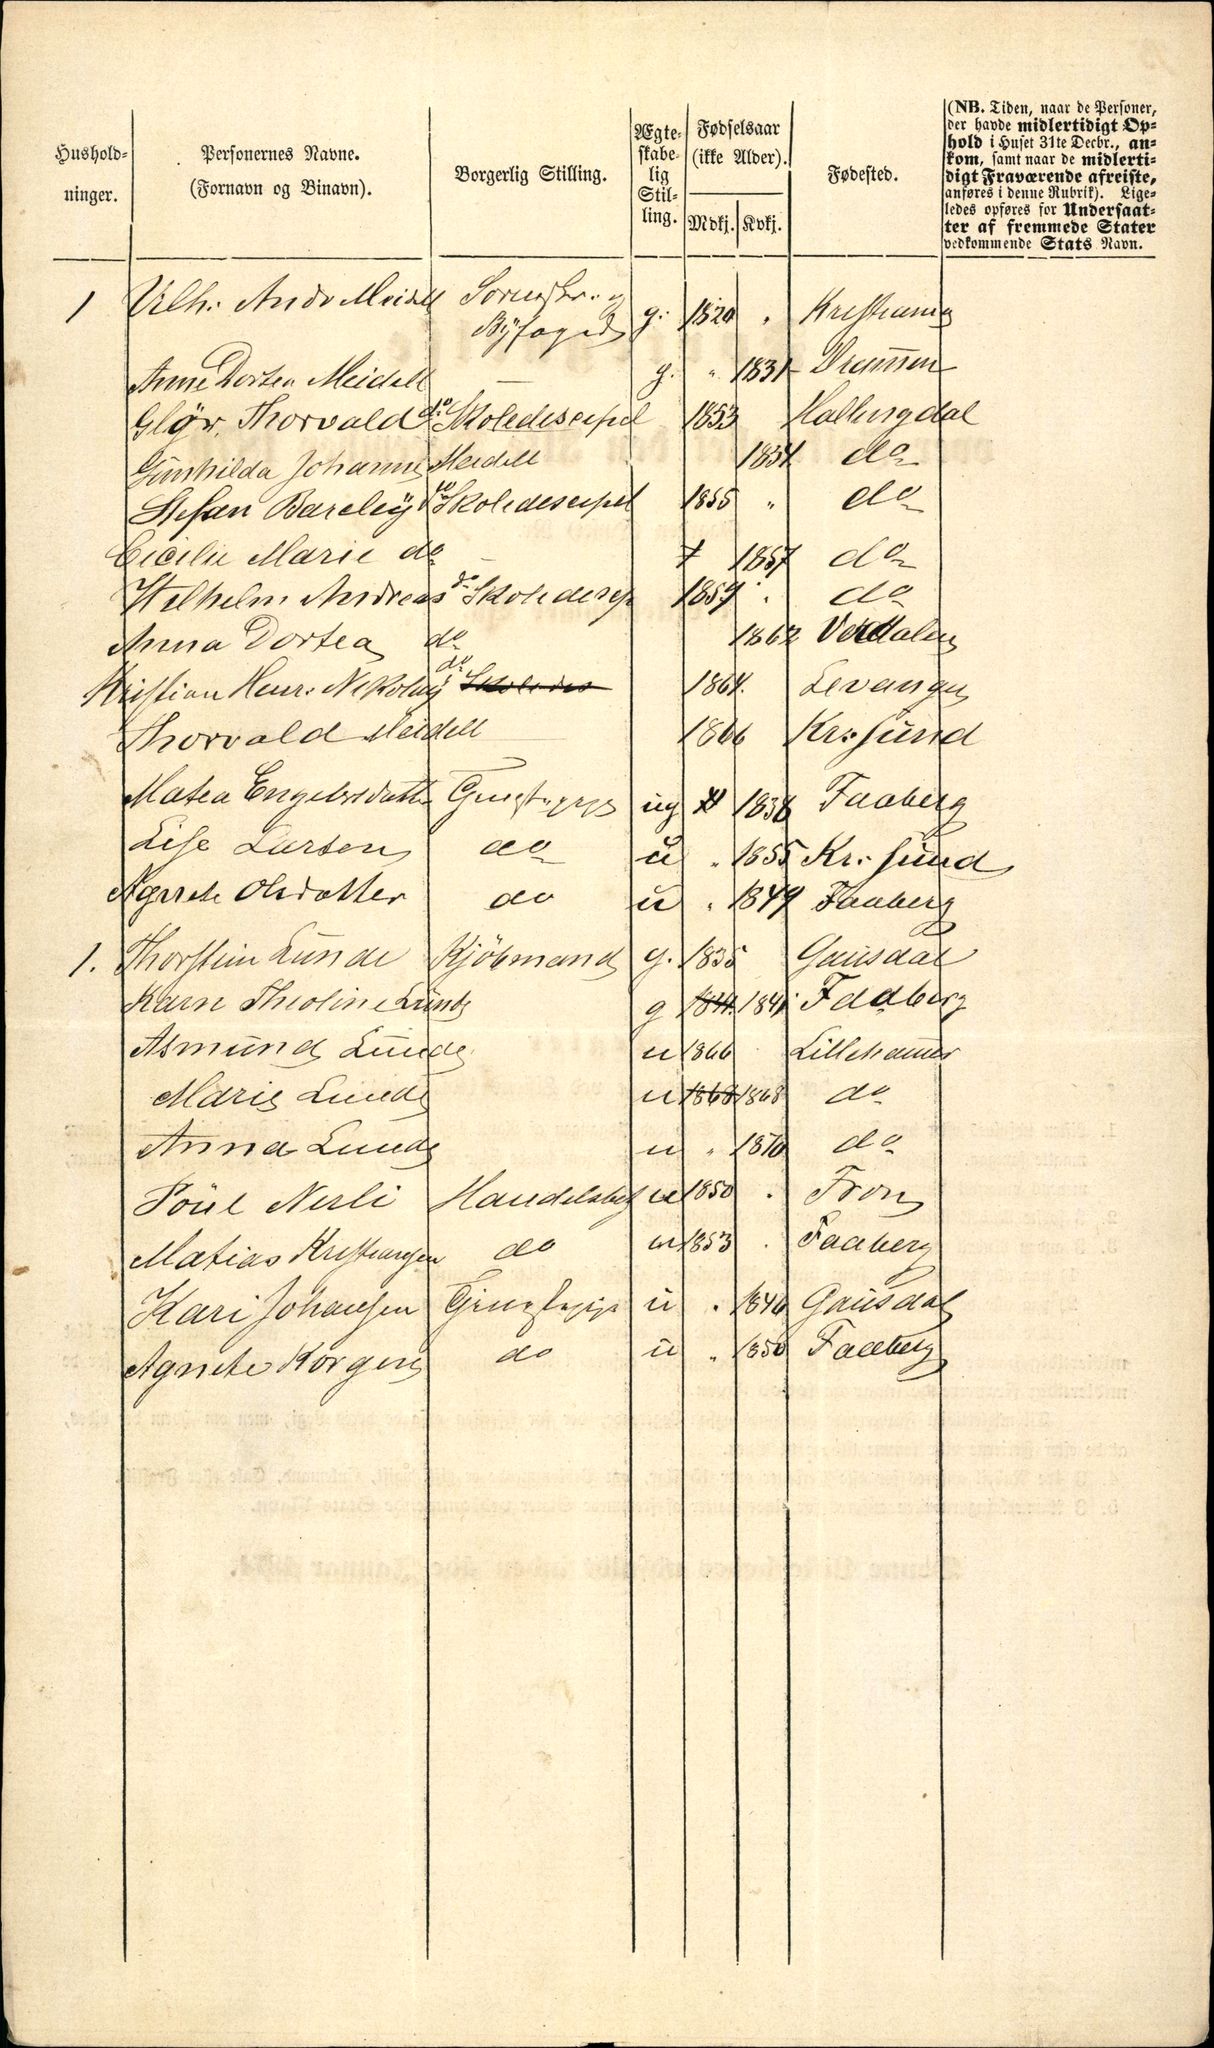 Hushold-
ninger.
Personernes Navne.
(Fornavn og Binavn).
Borgerlig Stilling.
Ægte-
skabe-
lig
Stil-
ling.
Fødselsaar
(ikke Alder).
Mdkj. Kvkj.
Fødested.
(NB. Tiden, naar de Personer,
der havde midlertidigt Op-
hold i Huset 31te Decbr., an-
kom, samt naar de midlerti-
digt Fraværende afreiste,
anføres i denne Rubrik). Lige-
ledes opføres for Undersaat-
ter af fremmede Stater
vedkommende Stats Navn.
1 Vilh. Andr Meidell Sorenskr. og
Byfoged g. 1820 " Kristiania
Anne Dortea Meidell — g. " 1831 Drammen
Glør. Thorvald do Skoledescipel 1853 Hallingdal
Gunhilda Johanne Meidell 1854 do
Stefan Barcley do Skoledescipel 1855 " do
Cicilie Marie do — 1857 do
Wilhelm Andreas do Skoledescip 1859 " do
Anna Dortea do 1862 Verdalen
Kristian Henr. Nikolay do Skoledes 1864. Levanger
Thorvald Meidell — 1866 Kr: sund
Matea Engebrsdatter Tjenestepige ug 1838 Faaberg
Lise Larsen do u " 1855 Kr: sund
Agnete Olsdatter do u " 1849 Faaberg
1. Thorstein Lunde Kjöbmand g. 1835 Gausdal
Karn Theoline Lunde g 1841. 1841 Faaberg
Asmund Lunde u 1866 Lillehammer
Marie Lunde u 1868 1868 do
Anna Lunde u " 1870 do
Poul Nerli Handelsbetj u 1850 " Fron
Matias Kristiansen do u 1853 " Faaberg
Kari Johansen Tjenestepige u " 1846 Gausdal
Agnete Korgen do u " 1850 Faaberg